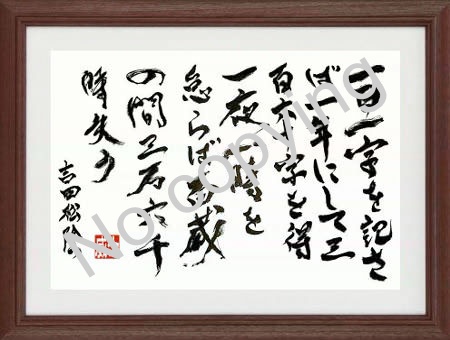 一日一字を記さ
ば一年にして三
百六十字を得
一夜一時を
怠らば百歳
の間三万六千
時失う
吉田松陰
No copying